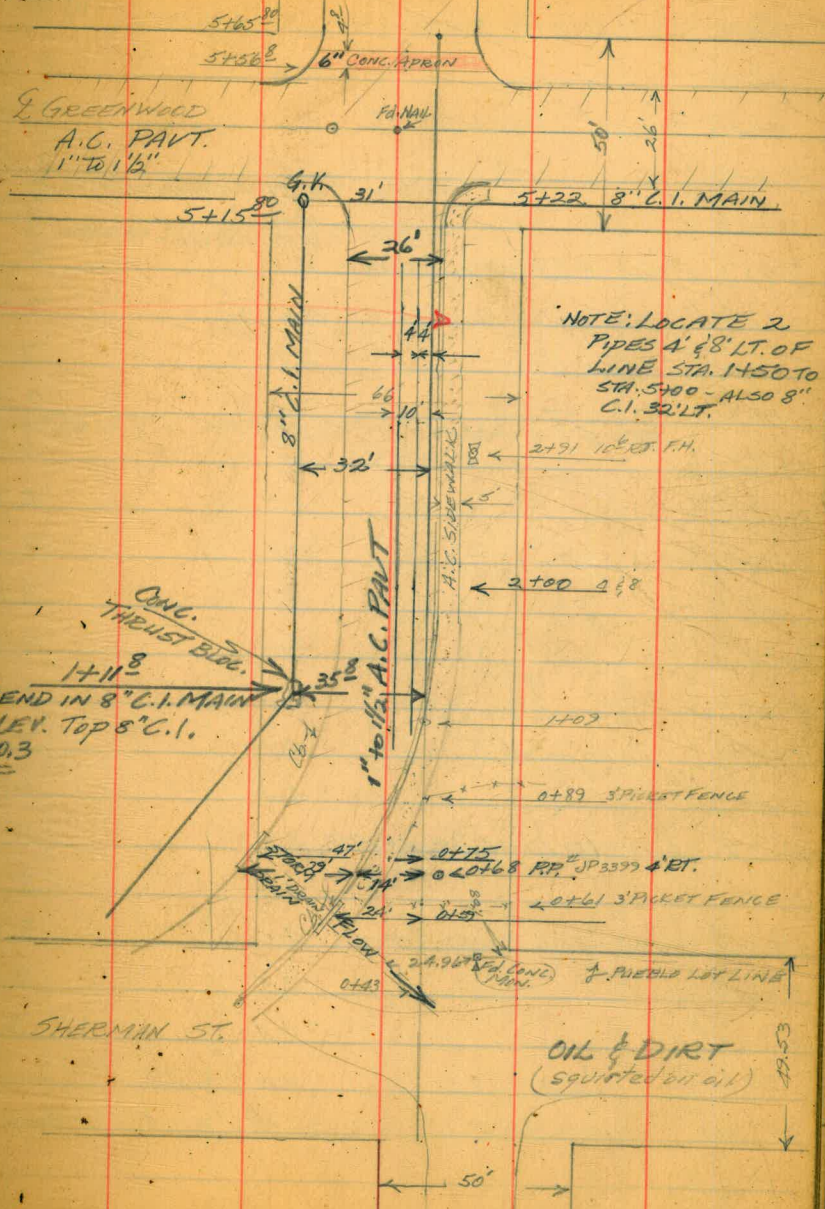 5+65 80
4 8
5+56 8
6" CONC. APRON
℄ GREENWOOD
A.C. PAVT.
1" TO 1 1/2"
Fd. NAIL
50'
26'
G.V.
31'
5+15 80
5+22 8" C.I. MAIN
26'
8" C.I. MAIN
4' 4'
NOTE: LOCATE 2
PIPES 4' & 8' LT. OF
LINE STA. 1+50 TO
STA. 5+00 - ALSO 8"
C.I. 32' LT.
66
10'
2+91 RT. F.H.
32'
5'
A.C. SIDEWALK
2+00 4 & 8
1" to 1 1/2" A.C. PAVT
CONC.
THRUST BLOC.
1+11 8
35
END IN 8" C.I. MAIN
EV. Top 8" C.I.
0.3
1+09
0+89 3' PICKET FENCE
STORM
DRAIN
47'
0+75
29'
14'
0+68 P.P.# JP3399 4' RT.
0+61 3' PICKET FENCE
24'
FLOW
24.96
Fd. CONC
MON.
PUEBLO LOT LINE
0+43
SHERMAN ST.
OIL & DIRT
(squirted on oil)
49.53
50'